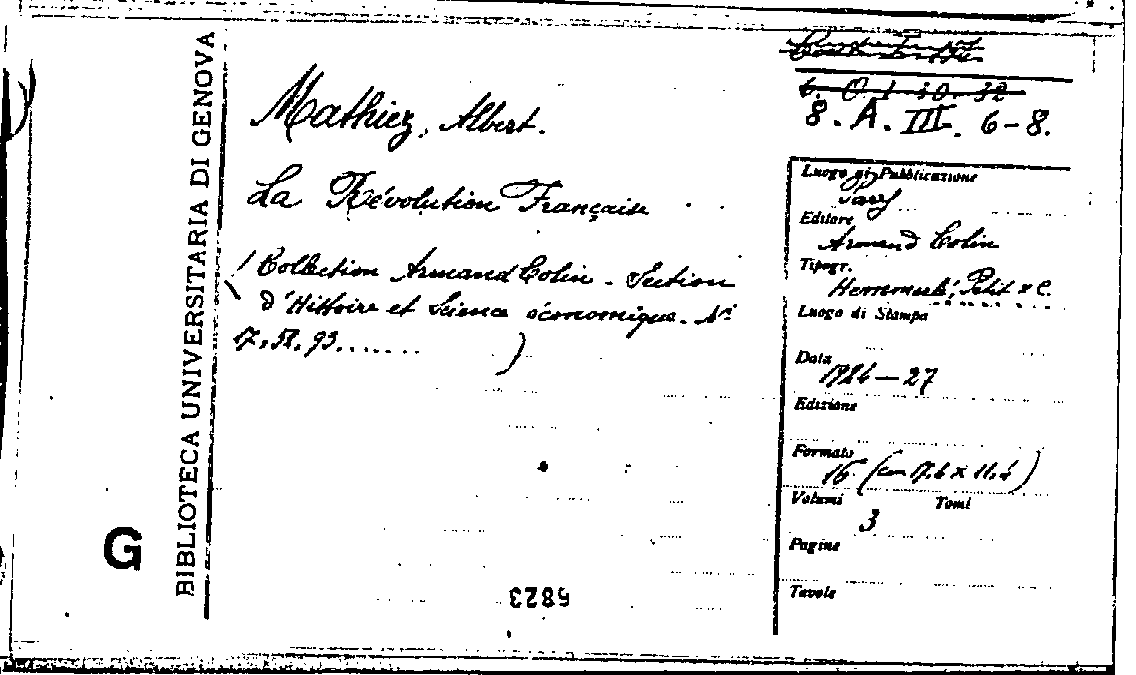 BIBLIOTECA UNIVERSITARIA DI GENOVA
G
6. O 1 30-32
8. A. III. 6-8.
Mathiez, Albert.
La Révolution Française
(Collection Armand Colin - Section
d'Histoire et Science économique. Nⁱ
17. 52. 93.......)
Luogo di Pubblicazione
Paris
Editore
Armand Colin
Tipogr.
Petit & C.
Luogo di Stampa
Data
1924-27
Edizione
Formato
16° (cm 17,6 x 11,4)
Volumi Tomi
3
Pagine
Tavole
6823